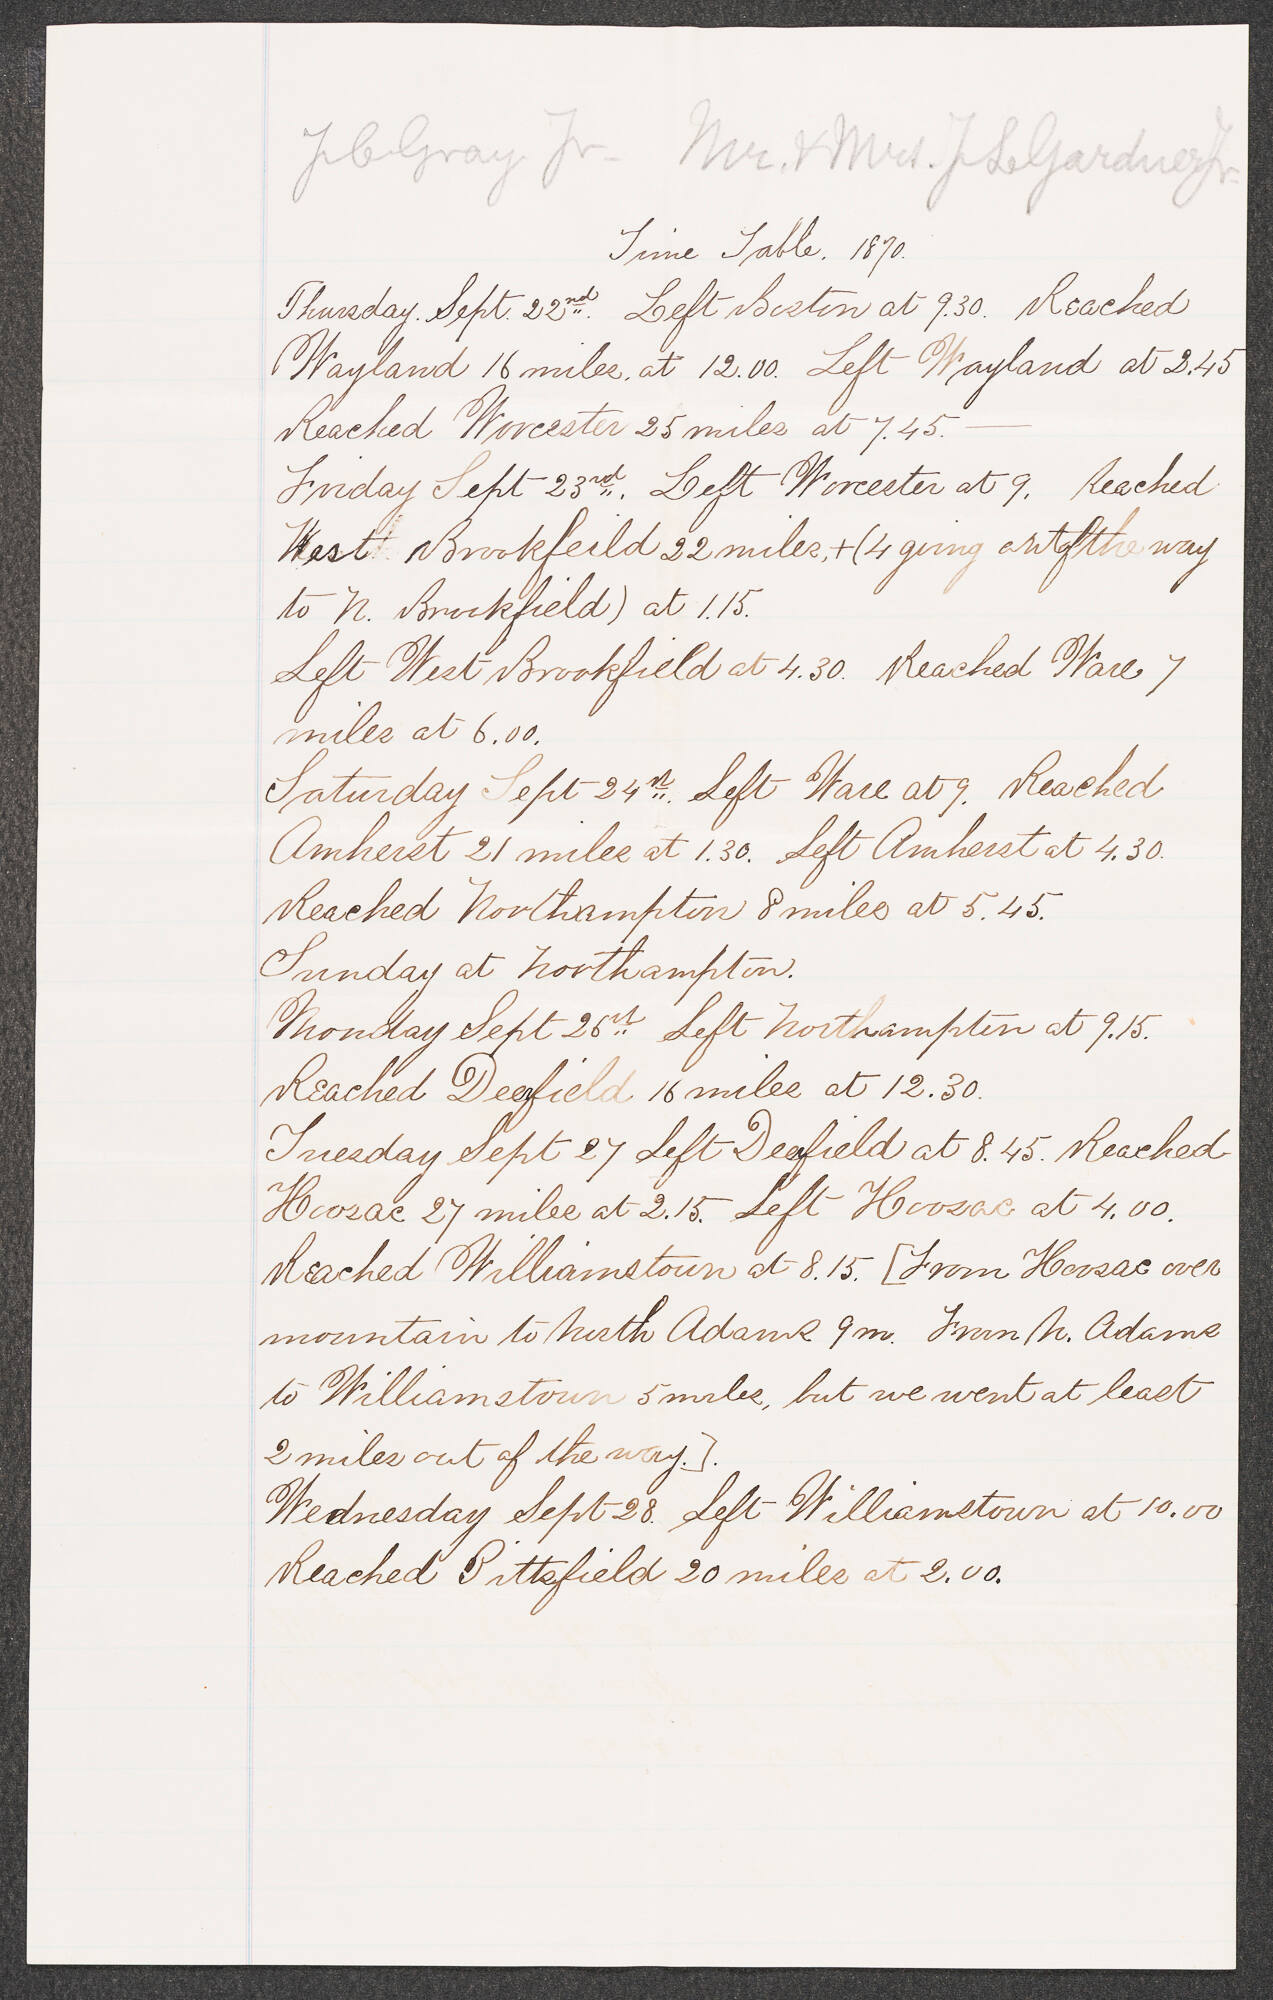 J C Gray Jr - Mr. & Mrs. J L Gardner Jr -
Time Table. 1870.
Thursday. Sept. 22nd. Left Boston at 9.30. Reached
Wayland 16 miles. at 12.00. Left Wayland at 2.45
Reached Worcester 25 miles at 7.45. —
Friday Sept 23rd. Left Worcester at 9. Reached
West Brookfeild 22 miles, + (4 going out of the way
to N. Brookfield) at 1.15.
Left West Brookfield at 4.30. Reached Ware 7
miles at 6.00.
Saturday Sept 24th. Left Ware at 9. Reached
Amherst 21 miles at 1.30. Left Amherst at 4.30.
Reached Northampton 8 miles at 5.45.
Sunday at Northampton.
Monday Sept 26th Left Northampton at 9.15.
Reached Deerfield 16 miles at 12.30.
Tuesday Sept 27 Left Deerfield at 8.45. Reached
Hoosac 27 miles at 2.15. Left Hoosac at 4.00.
Reached Williamstown at 8.15. [From Hoosac over
mountain to North Adams 9 m. From N. Adams
to Williamstown 5 miles, but we went at least
2 miles out of the way.].
Wednesday Sept 28. Left Williamstown at 10.00
Reached Pittsfield 20 miles at 2.00.